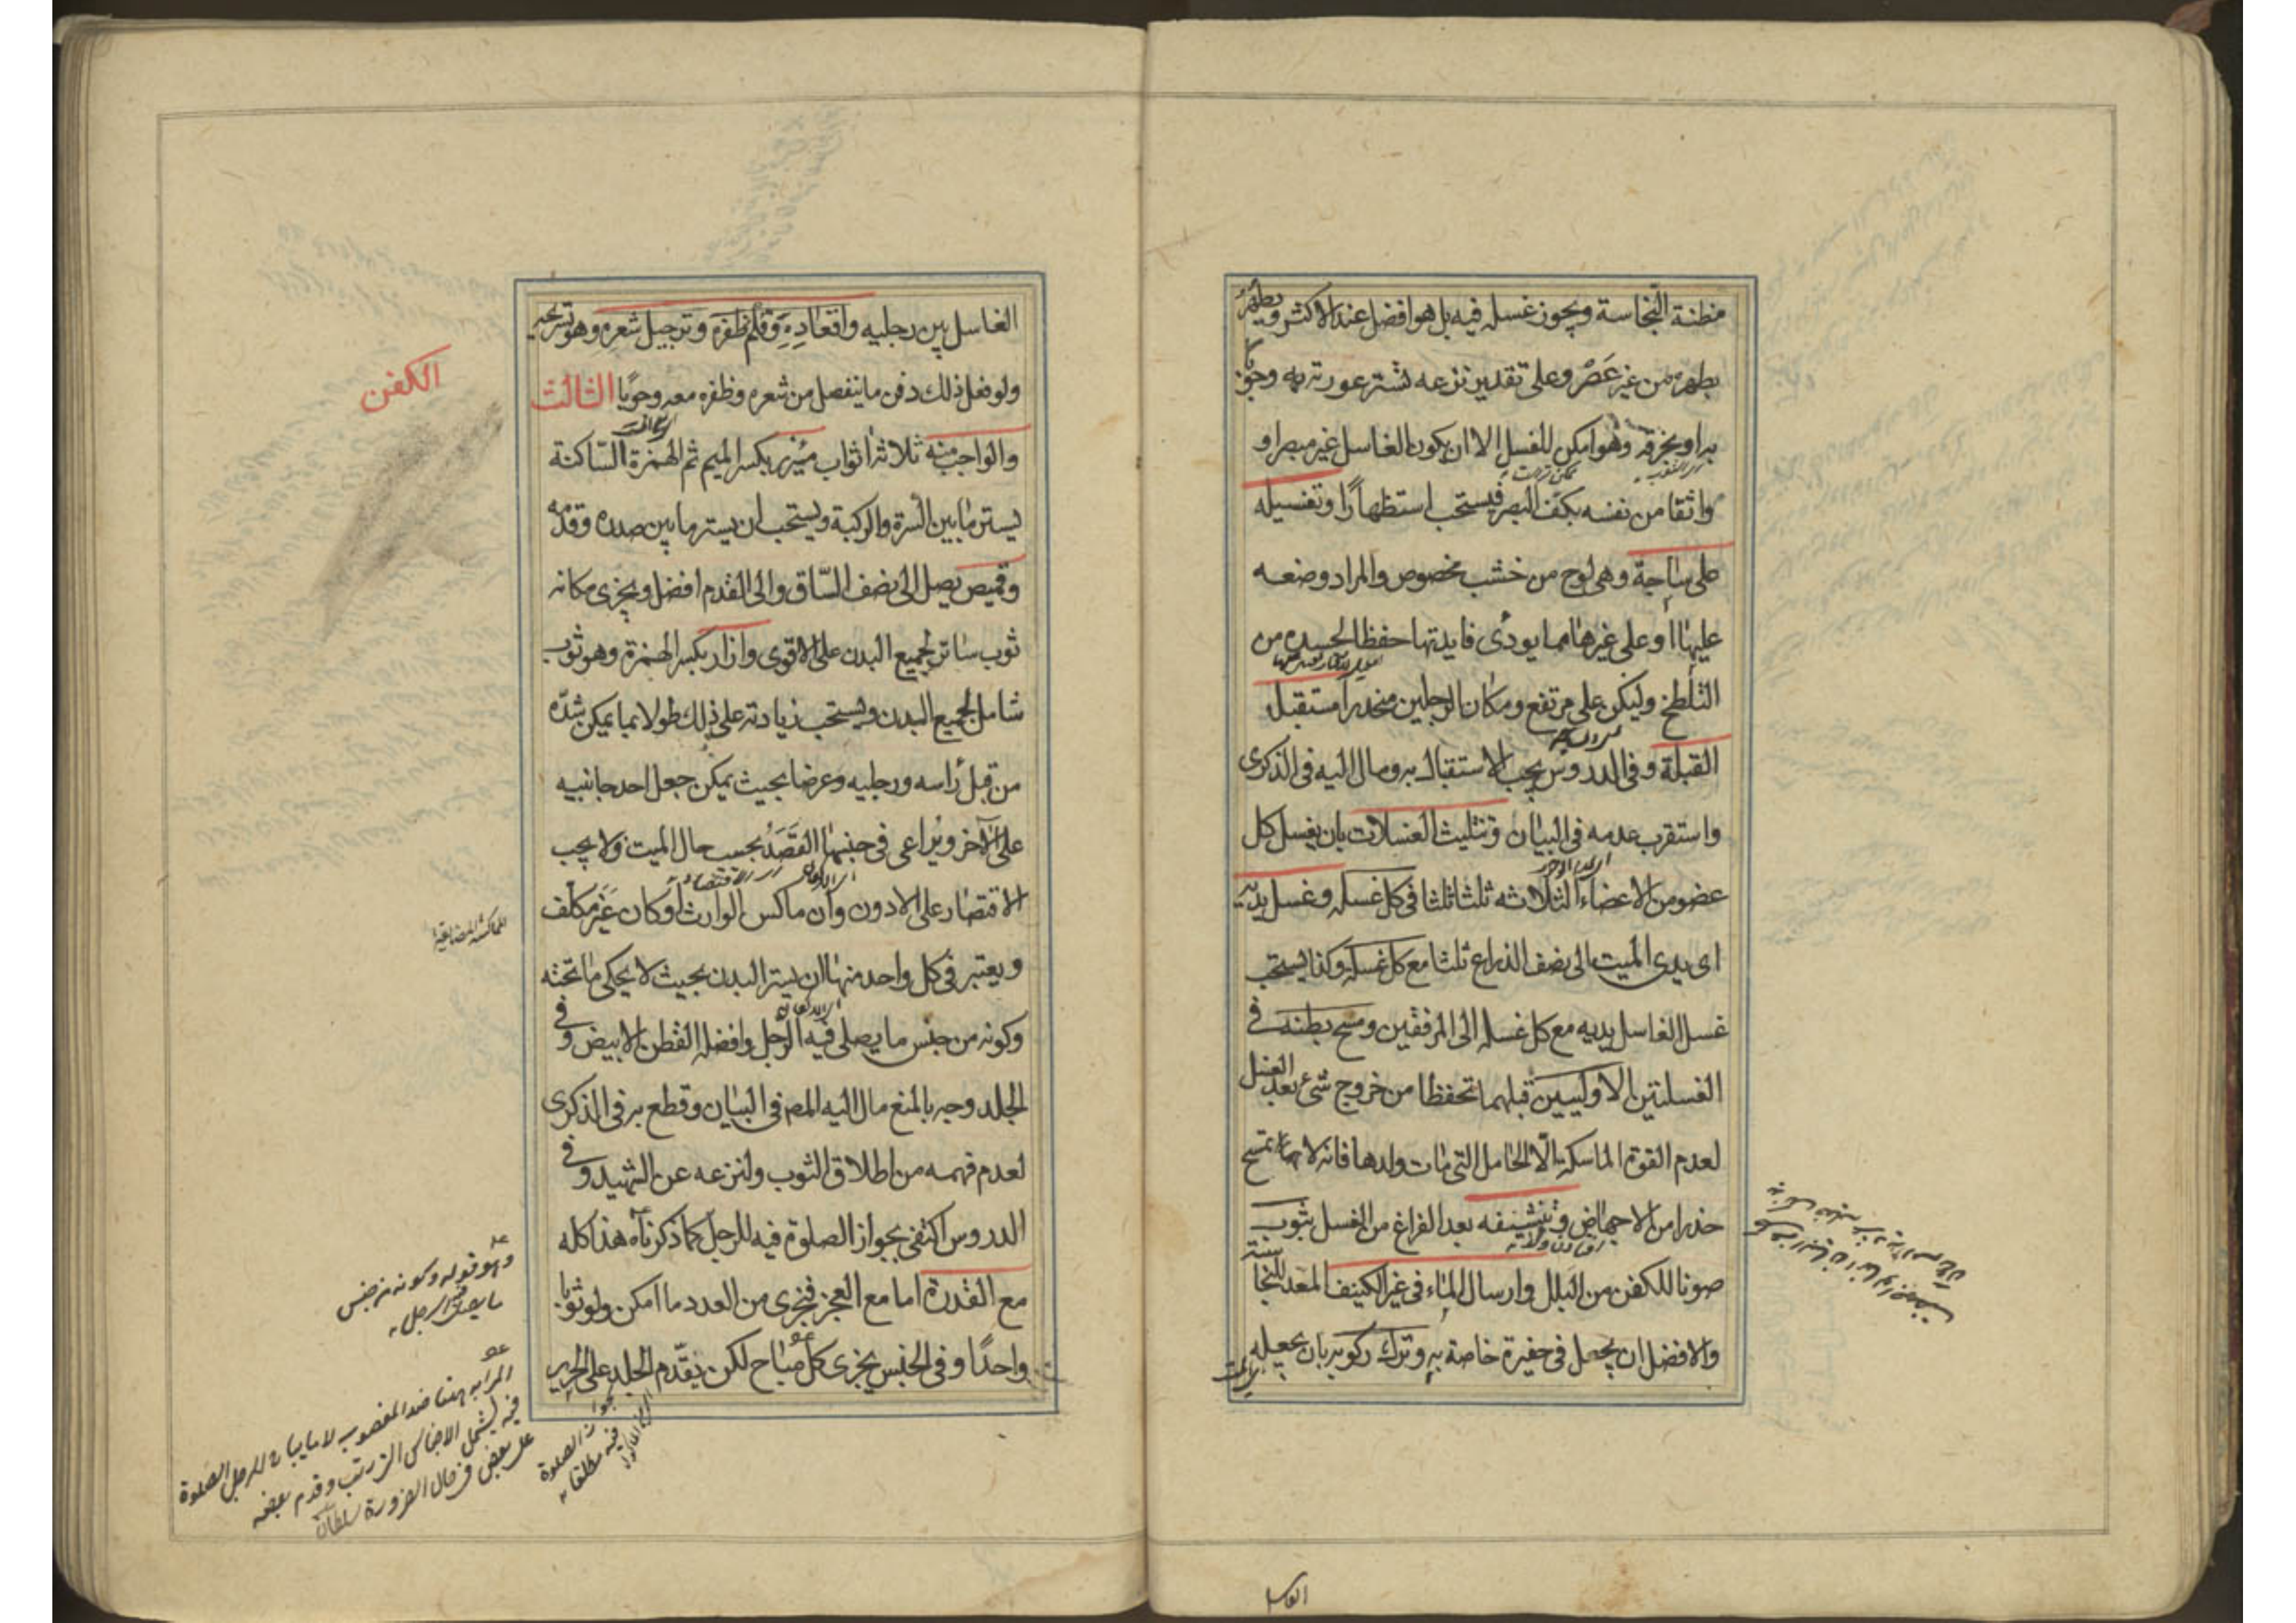 مظنة النّجاسة ويجوز غسله فيه بل هو افضل عند الاكثر ويطهر
بطهره من غير عَصْر وعلى تقدير نزعه تستر عورته به وجوبا
به او بخرقة وهو امكن للغسل الا ان يكون الغاسل غير مبصر او
واثقا من نفسه بكف البصر فيستحب استظهارًا وتغسيله
على ساجة وهى لوح من خشب مخصوص والمراد وضعه
عليها او على غيرها مما يودى فايدتها حفظا لجسده من
التلطخ وليكن على مرتفع ومكان الرجلين منحدرا مستقبل
القبلة وفى الدروس يجب الاستقبال به ومال اليه فى الذكرى
واستقرب عدمه فى البيان وتثليث الغسلات بان يغسل كل
عضو من الاعضاء الثلاثة ثلثا ثلثا فى كل غسلة وغسل يديه
اى يدى الميت الى نصف الذراع ثلثا مع كل غسلة وكذا يستحب
غسل الغاسل يديه مع كل غسلة الى المرفقين ومسح بطنه فى
الغسلتين الاوليين قبلهما تحفظا من خروج شىء بعد الغسل
لعدم القوة الماسكة الّا الحامل التى مات ولدها فانها لا تمسح
حذرا من الاجهاض وتنشيفه بعد الفراغ من الغسل بثوب
صونا للكفن من البلل وارسال الماء فى غير الكنيف المعد للنجاسة
والافضل ان يجعل فى حفيرة خاصة به وترك ركوبه بان يجعله
الغاسل
الغاسل بين رجليه واقعاده وقلم ظفره وترجيل شعره وهو تسريحه
ولو فعل ذلك دفن ما ينفصل من شعره وظفره معه وجوبًا الثالث
الكفن
والواجب منه ثلاثة اثواب مئزر بكسر الميم ثم الهمزة السّاكنة
يستر ما بين السرة والركبة ويستحب ان يستر ما بين صدره وقدمه
وقميص يصل الى نصف السّاق والى القدم افضل ويجزى مكانه
ثوب ساتر لجميع البدن على الاقوى وازار بكسر الهمزة وهو ثوب
شامل لجميع البدن ويستحب زيادته على ذلك طولا بما يمكن شدّه
من قبل رأسه ورجليه وعرضا بحيث يمكن جعل احد جانبيه
على الآخر ويراعى فى جنسها القصد بحسب حال الميت ولا يجب
الاقتصار على الادون وان ماكس الوارث او كان غير مكلف
المماكسة المضايقة
ويعتبر فى كل واحد منها ان يستر البدن بحيث لا يحكى ما تحته
وكونه من جنس ما يصلى فيه الرجل وافضله القطن الابيض وفى
الجلد وجه بالمنع مال اليه المص فى البيان وقطع به فى الذكرى
لعدم فهمه من اطلاق الثوب ولنزعه عن الشهيد وفى
الدروس اكتفى بجواز الصلوة فيه للرجل كما ذكرناه هذا كله
مع القدرة اما مع العجز فيجزى من العدد ما امكن ولو ثوبا
واحدًا وفى الجنس يجزى كل مباح لكن يقدّم الجلد على الحرير
وهو قوله وكونه من جنس
ما يصلى فيه الرجل
المراد به هنا ضد المغصوب لا ما يباح للرجل الصلوة
فيه ليشمل الاجناس التى رتب وقدم بعضه
على بعض فى حال الضرورة سلطان
لجواز الصلوة
فيه مطلقا